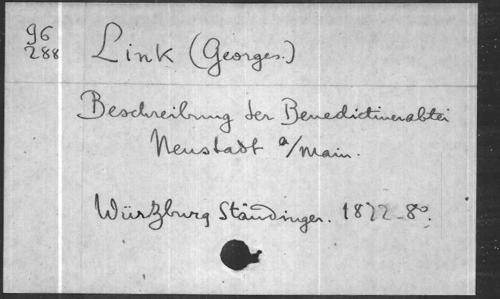 96
288
Link (Georges.)
Beschreibung der Benedictinerabtei
Neustadt a/Main.
Würzburg Stäudinger. 1872_8°.